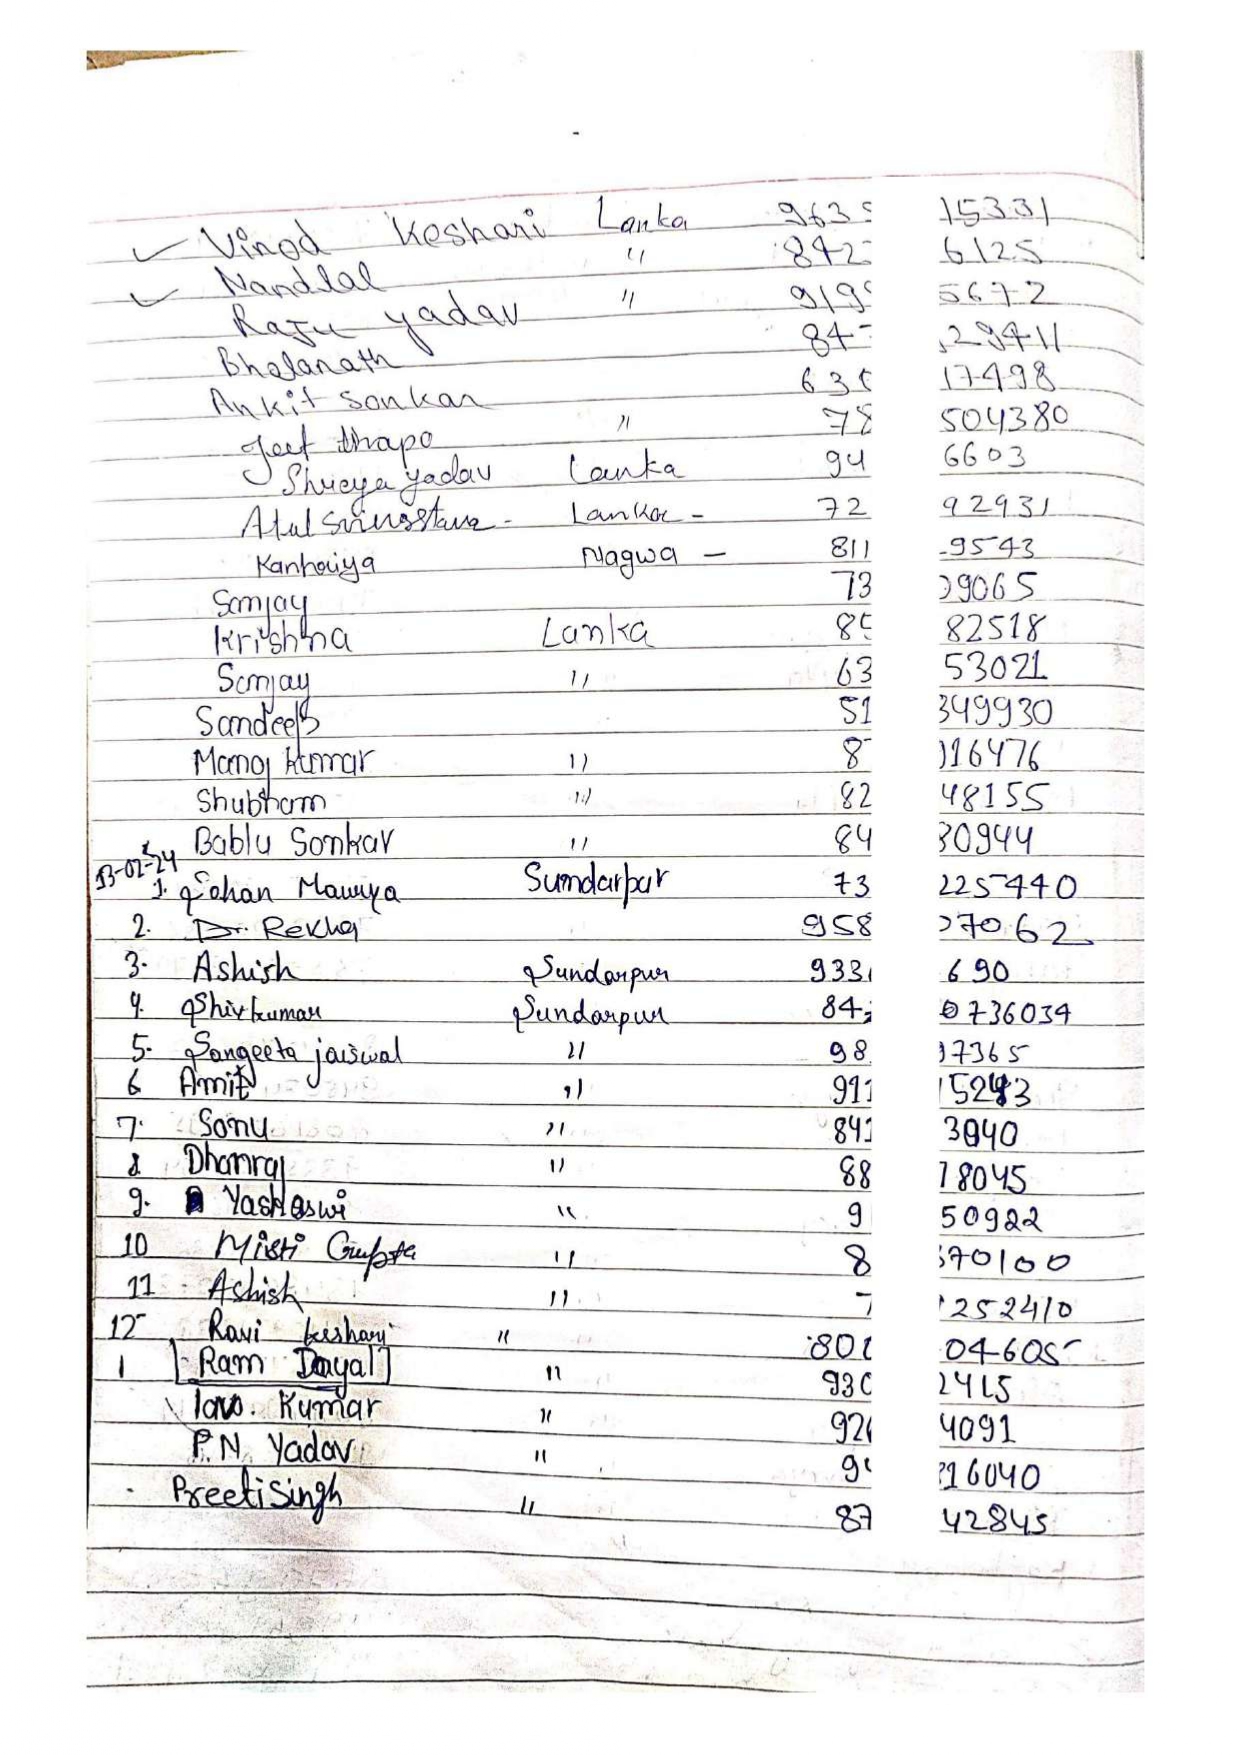 Vinod Keshari Lanka 963 15331
Nanddal " 842 6125
Raju yadav " 919 5672
Bholanath 84 29411
Ankit Sonkar 63 17498
Jeet thapa " 78 504380
Shreya yadav Lanka 94 6603
Atul Srivastava - Lanka - 72 92931
Kanhaiya Nagwa - 811 9543
Sanjay 73 9065
Krishna Lanka 8 82518
Sanjay " 63 53021
Sandeep 51 349930
Manoj Kumar " 8 16476
Shubham " 82 48155
Bablu Sonkar " 84 30944
13-02-24
1. Sohan Maurya Sundarpur 73 225440
2. Dr. Rekha 958 7062
3. Ashish Sundarpur 933 690
4. Shivkumar Sundarpur 84 0736034
5. Sangeeta jaiswal " 98 7365
6 Amit " 911 5243
7. Sonu " 841 3040
8 Dhanraj " 88 18045
9. Yashaswi " 9 50922
10 Misti Gupta " 8 70100
11 Ashish " 7 252410
12 Ravi keshari " 801 04605
1 Ram Dayal " 930 2415
lav. Kumar " 92 4091
P.N. Yadav " 9 16040
Preeti Singh " 87 42845